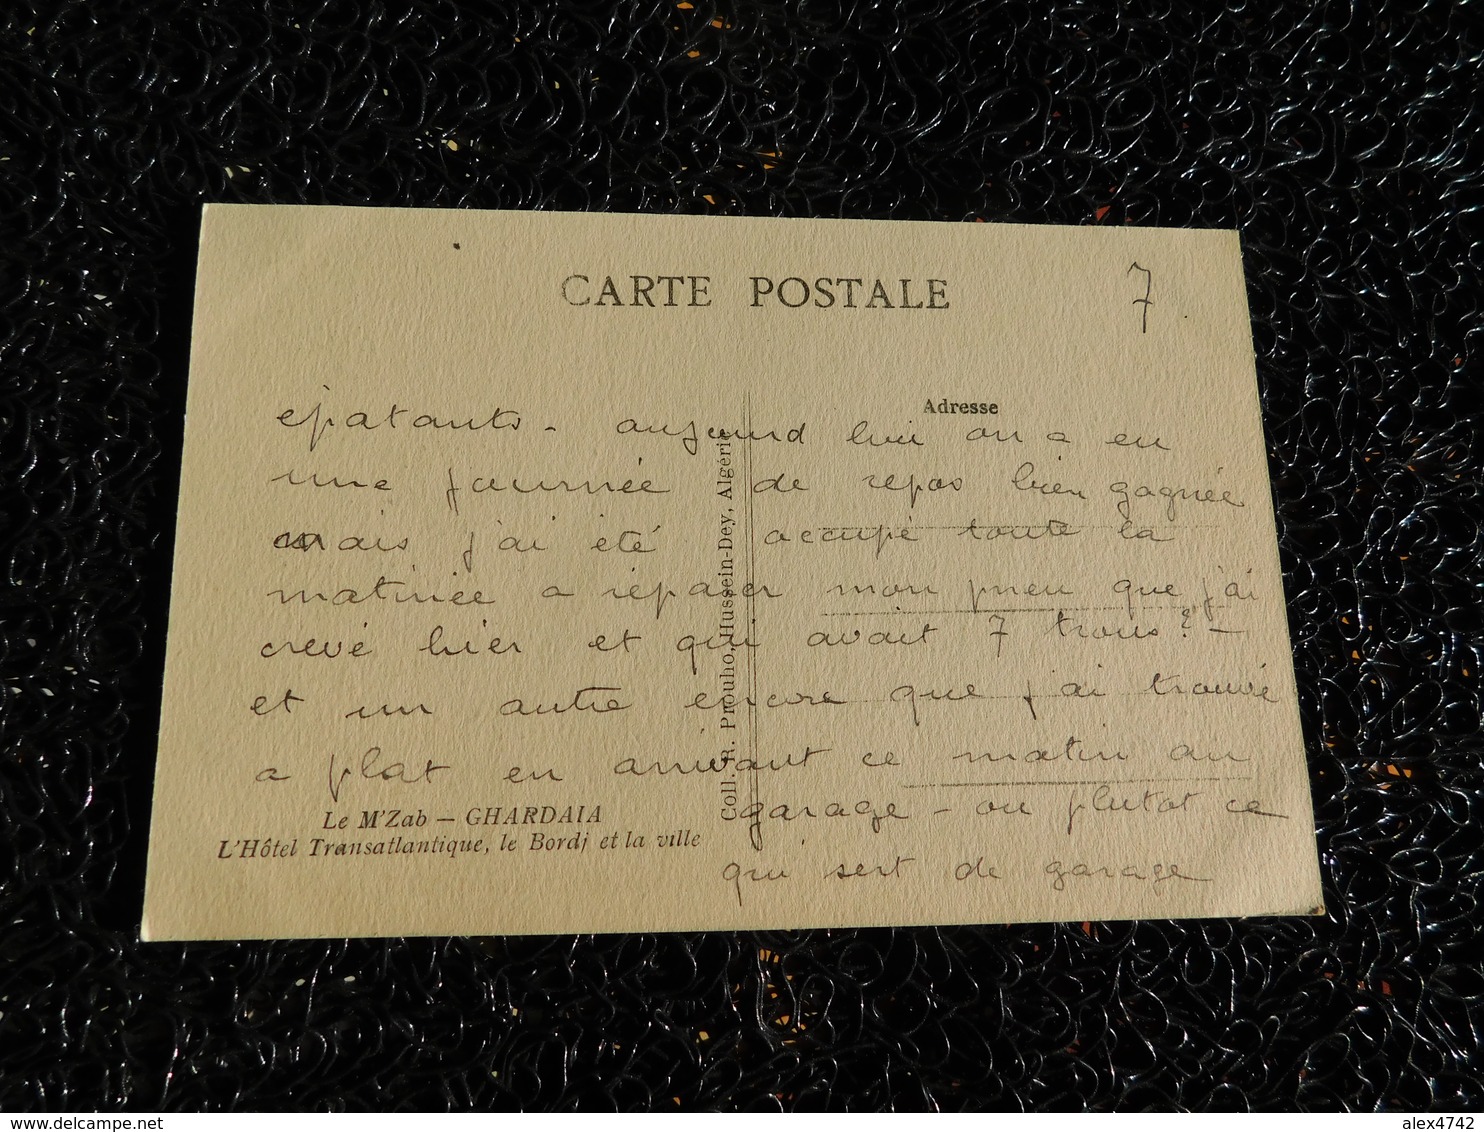 CARTE POSTALE
7
Adresse
épatants - aujourd hui on a eu
une journée de repos bien gagnée
mais j'ai été occupé toute la
matinée a réparer mon pneu que j'ai
crevé hier et qui avait 7 trous? -
et un autre encore que j'ai trouvé
a plat en arrivant ce matin au
garage - ou plutot ce
qui sert de garage
Coll. R. Prouho, Hussein-Dey, Algérie
Le M'Zab — GHARDAIA
L'Hôtel Transatlantique, le Bordj et la ville
delcampe.net
alex4742